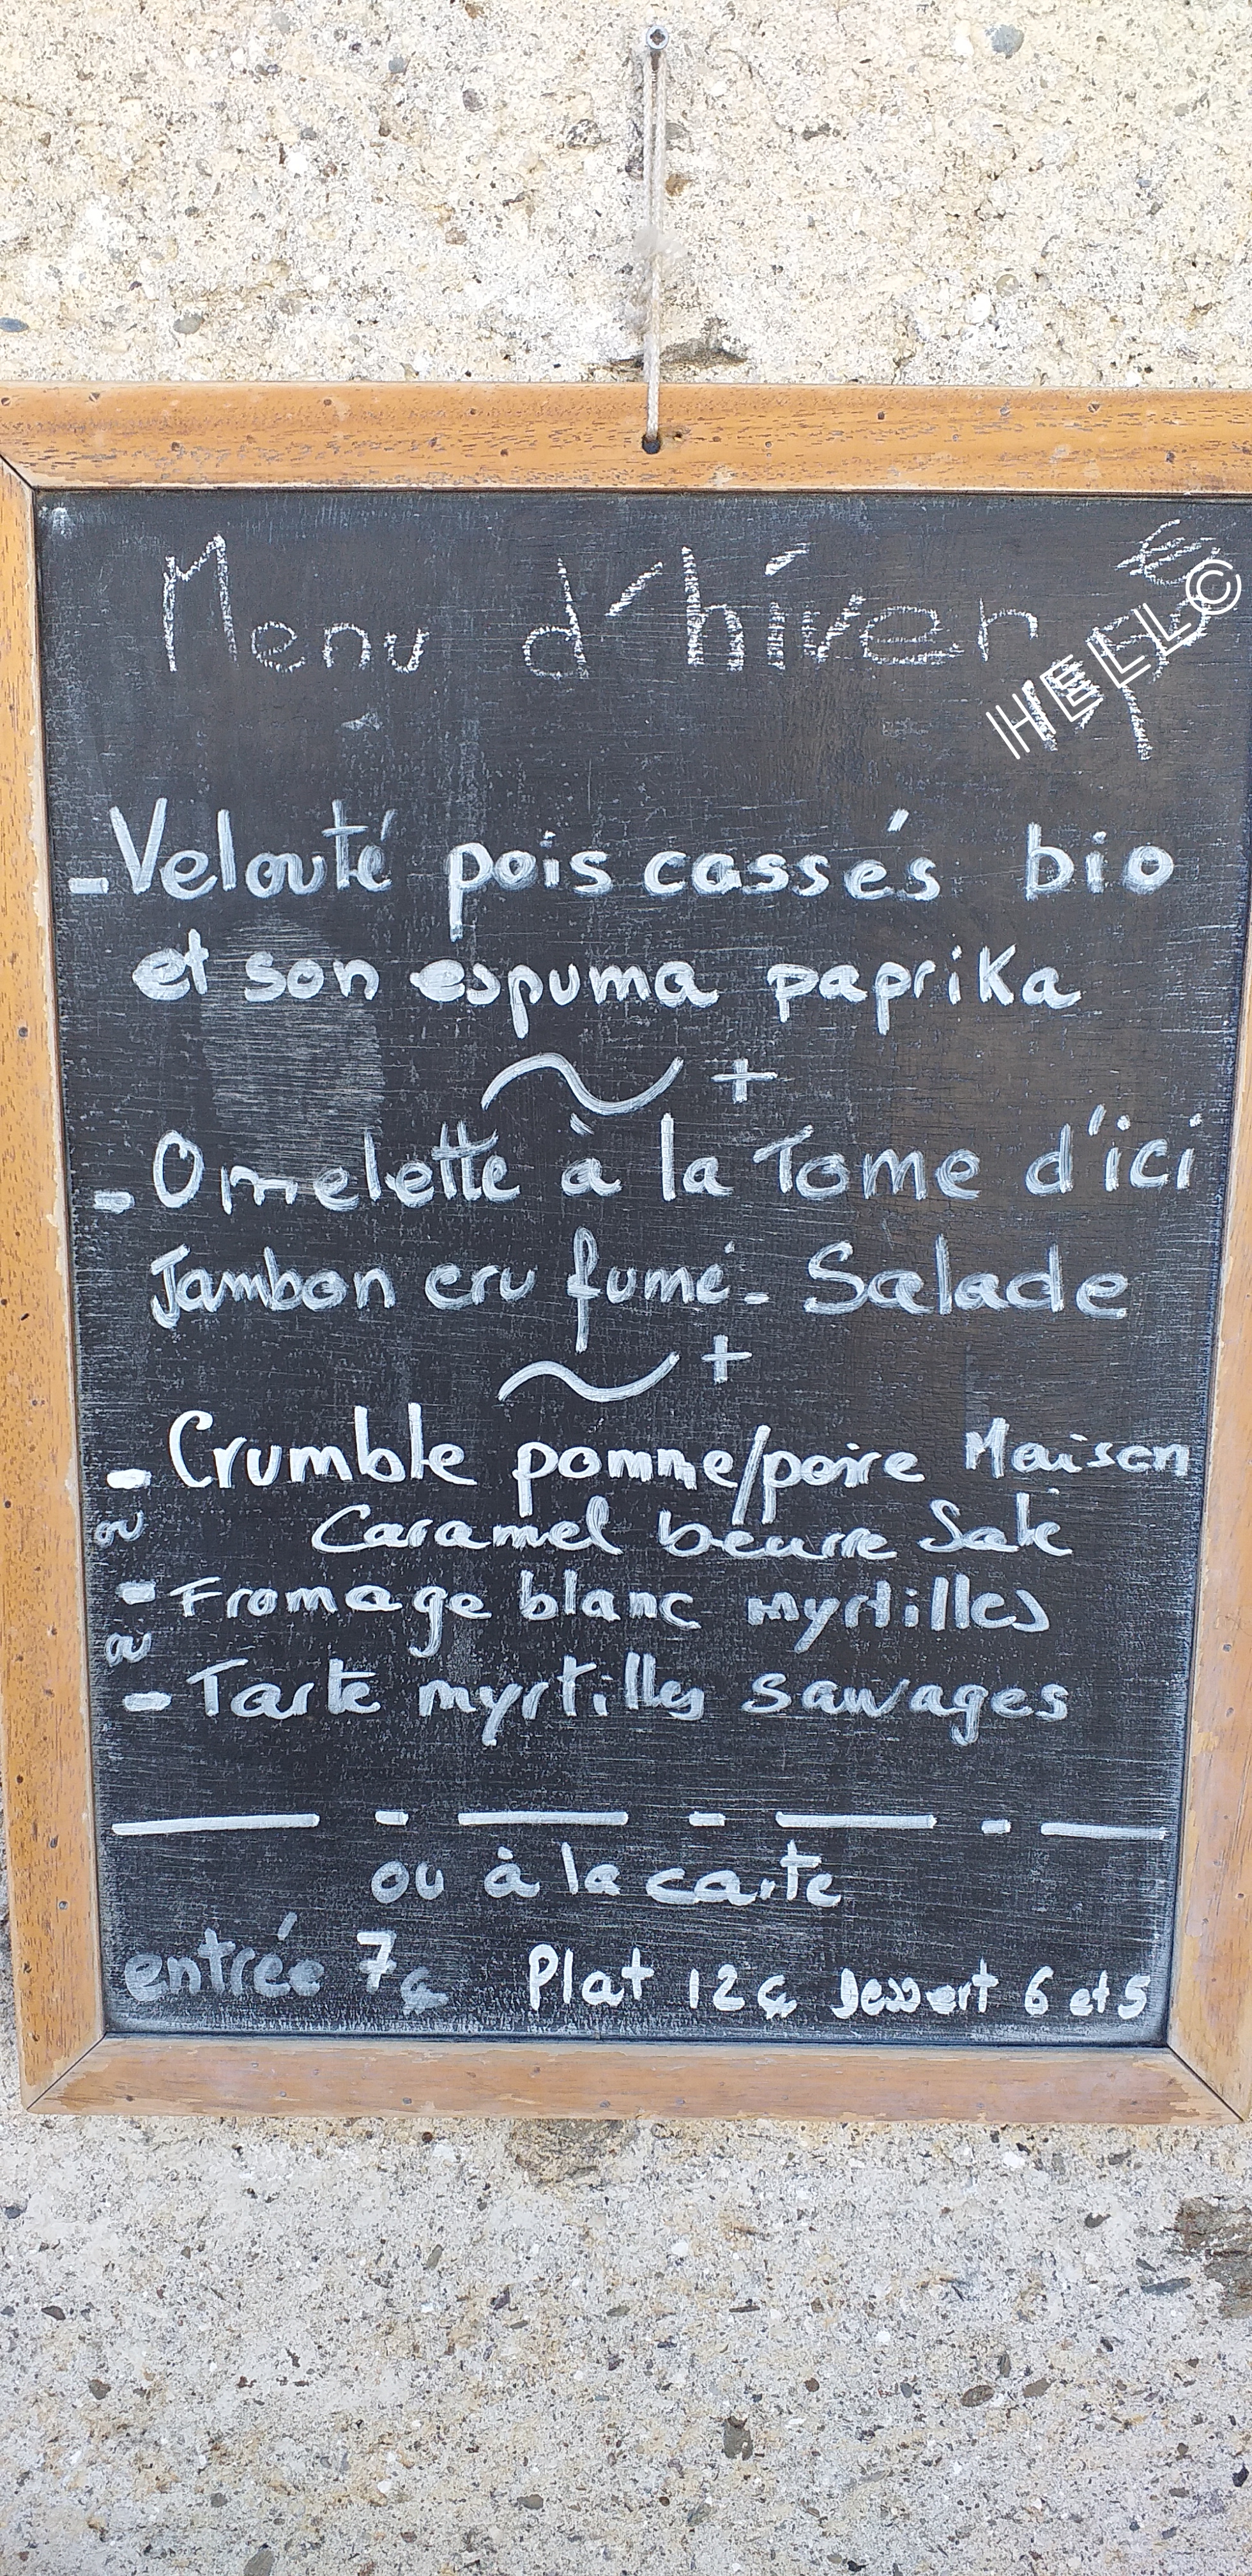 Menu d'hiver
HELLO
-Velouté pois cassés bio
et son espuma paprika
~ +
-Omelette à la Tome d'ici
Jambon cru fumé - Salade
~ +
- Crumble pomme/poire Maison
ou Caramel beurre Salé
- Fromage blanc myrtilles
ou
- Tarte myrtilles sauvages
ou à la carte
entrée 7€ Plat 12€ Dessert 6 et 5